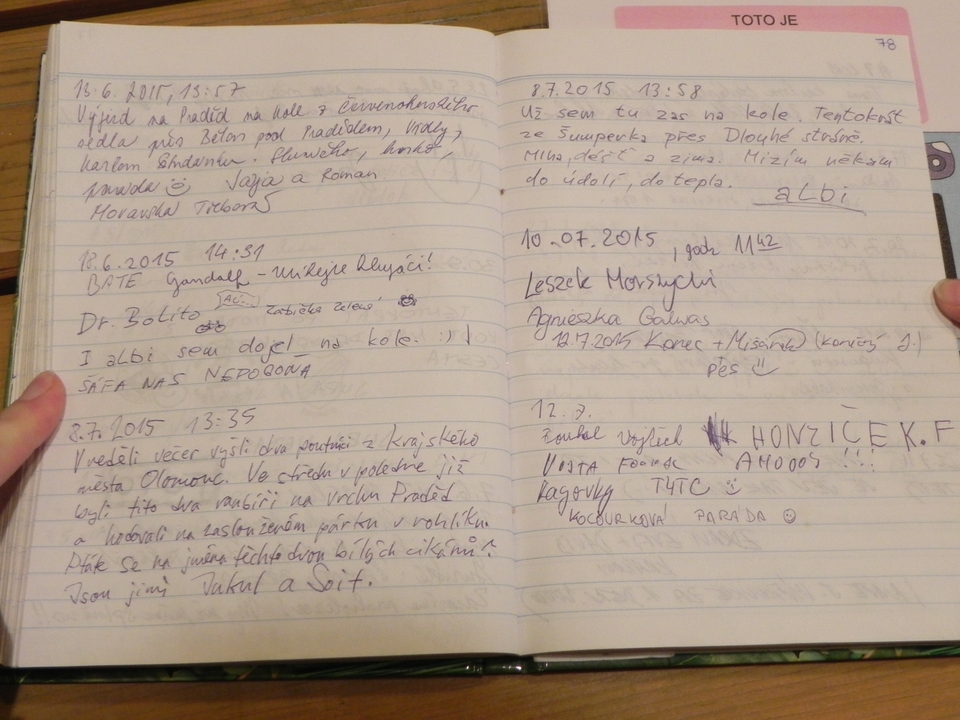 13.6.2015, 13:57
Výjezd na Praděd na kole z Červenohorského
sedla přes Béton pod Pradědem, Vrdly,
Karlem Sluníčko, horko,
paráda a Roman
Moravská Třebová
18.6.2015 14:31
BATE Gandalf - umírejte hlupáci!
Dr. Bolito Žabička zelená
I albi sem dojel na kole. :)
ŠÁFA NAS NEPOGODA
8.7.2015 13:35
V neděli večer vyšli dva poutníci z krajského
města Olomouc. Ve středu v poledne již
byli tito dva raubíři na vrchu Praděd
a hodovali na zaslouženém párku v rohlíku.
Ptáte se na jména těchto dvou bílých cikánů?
Jsou jimi Jakub a Soit.
TOTO JE
78
8.7.2015 13:58
Už sem tu zas na kole. Tentokrát
ze Šumperka přes Dlouhé stráně.
Mlha, déšť a zima. Mizím někam
do údolí, do tepla.
albi
10.07.2015, godz 11 42
Leszek
Agnieszka Galwas
12.7.2015 Konec +
pes
12.7.
Vojtěch HONZÍČEK.F
VOJTA AHOOOJ !!!
T4TC
KOCOURKOVÁ PARÁDA